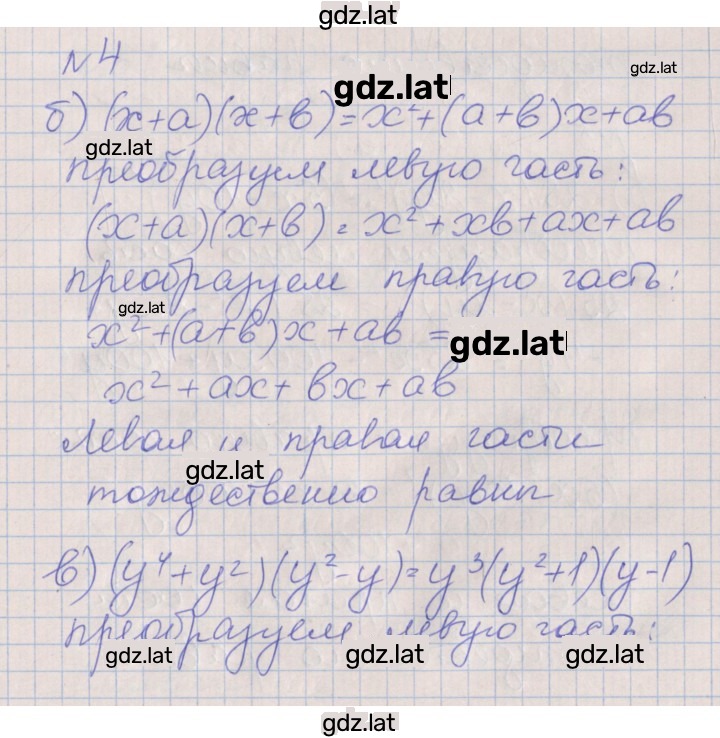 gdz.lat
№ 4
gdz.lat
gdz.lat
б) (x+a)(x+в)=x²+(a+в)x+aв
gdz.lat
преобразуем левую часть:
(x+a)(x+в)=x²+xв+ax+aв
преобразуем правую часть:
gdz.lat
x²+(a+в)x+aв=
gdz.lat
x²+ax+вx+aв
Левая и правая части
gdz.lat
тождественно равны
в) (y⁴+y²)(y²-y)=y³(y²+1)(y-1)
преобразуем левую часть:
gdz.lat gdz.lat gdz.lat
gdz.lat